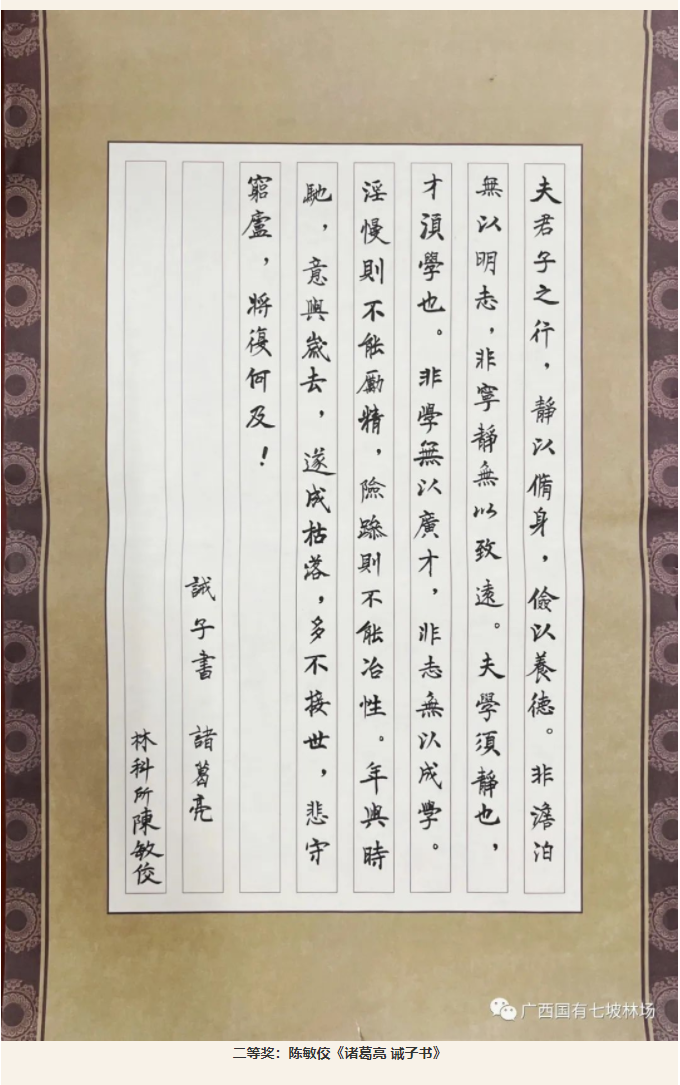 夫君子之行，靜以脩身，儉以養德。非澹泊
無以明志，非寧靜無以致遠。夫學須靜也，
才須學也。非學無以廣才，非志無以成學。
淫慢則不能勵精，險躁則不能冶性。年與時
馳，意與嵗去，遂成枯落，多不接世，悲守
窮廬，將復何及！
誡子書 諸葛亮
林科所陳敏佼
广西国有七坡林场
二等奖：陈敏佼《诸葛亮 诫子书》